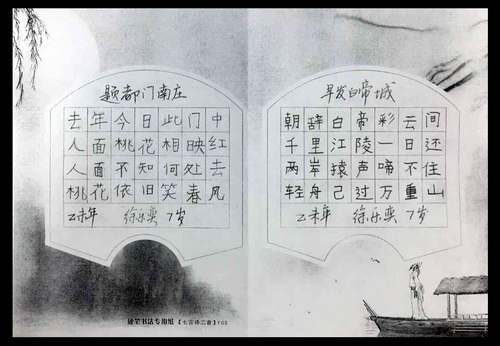 题都门南庄
去年今日此门中
人面桃花相映红
人面不知何处去
桃花依旧笑春风
乙未年 徐乐奕 7岁
早发白帝城
朝辞白帝彩云间
千里江陵一日还
两岸猿声啼不住
轻舟己过万重山
乙未年 徐乐奕 7岁
硬笔书法专用纸【七言诗二首】